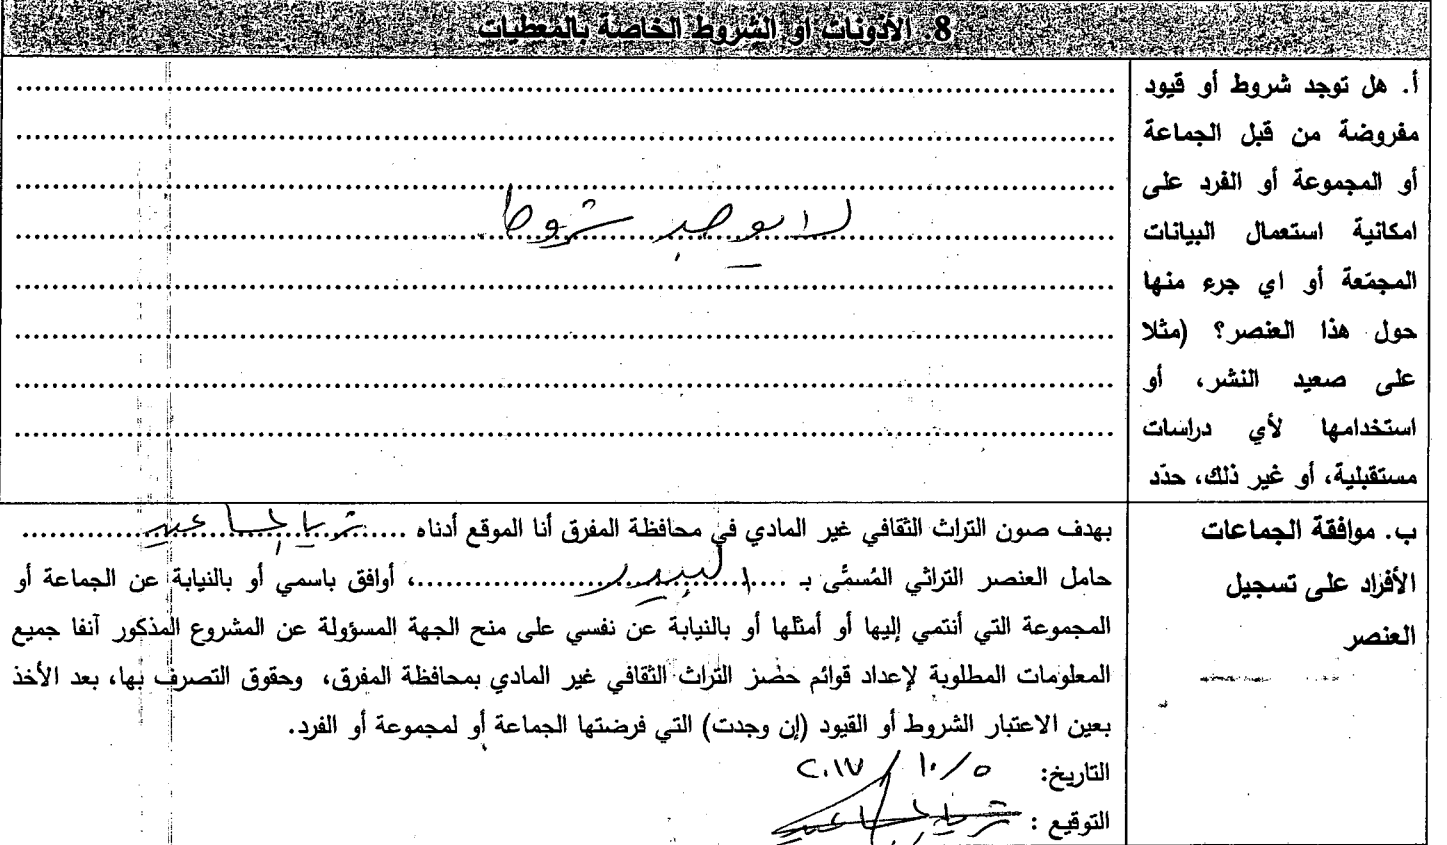 8. الأذونات او الشروط الخاصة بالمعطيات
أ. هل توجد شروط أو قيود
مفروضة من قبل الجماعة
أو المجموعة أو الفرد على
امكانية استعمال البيانات
المجمّعة أو اي جرء منها
حول هذا العنصر؟ (مثلا
على صعيد النشر، أو
استخدامها لأي دراسات
مستقبلية، أو غير ذلك، حدّد
لا يوجد شروط
ب. موافقة الجماعات
الأفراد على تسجيل
العنصر
بهدف صون التراث الثقافي غير المادي في محافظة المفرق أنا الموقع أدناه ..... ثريا .....
حامل العنصر التراثي المُسمّى بـ ..... البيدر .....، أوافق باسمي أو بالنيابة عن الجماعة أو
المجموعة التي أنتمي إليها أو أمثلها أو بالنيابة عن نفسي على منح الجهة المسؤولة عن المشروع المذكور آنفا جميع
المعلومات المطلوبة لإعداد قوائم حصر التراث الثقافي غير المادي بمحافظة المفرق، وحقوق التصرف بها، بعد الأخذ
بعين الاعتبار الشروط أو القيود (إن وجدت) التي فرضتها الجماعة أو لمجموعة أو الفرد.
التاريخ: ٥/١٠/٢٠١٧
التوقيع : ثريا